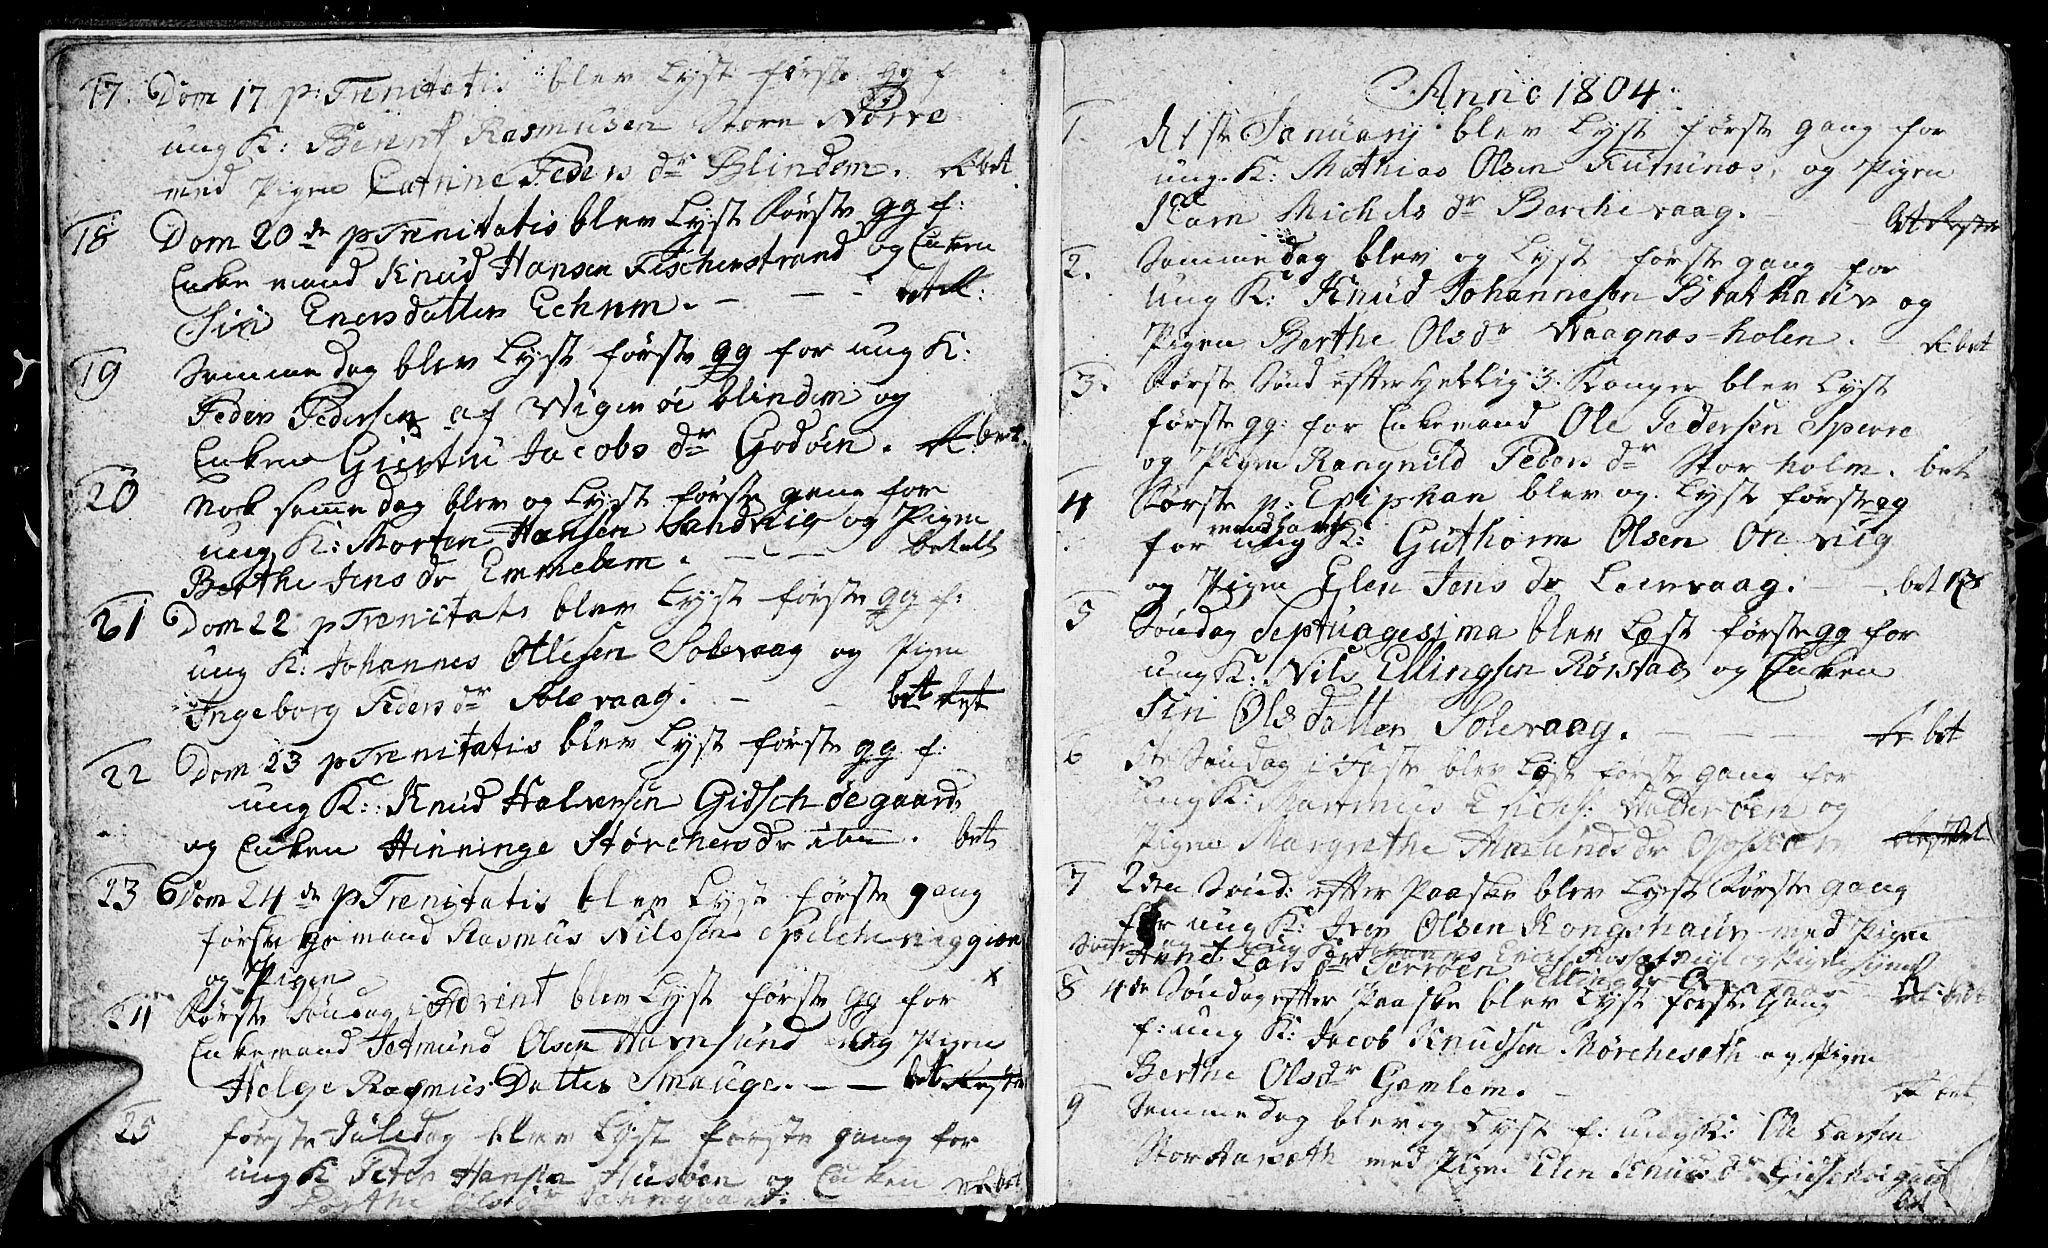 17. Dom 17 p: Trenitatis blev Lyst første gg f
ung K: Bennt Rasmusen Store Nørve
med Pigen Catrine Peders dr Blindem. bet
18 Dom 20de p Trenitatis blev Lyst første gg f:
Enke mand Knud Hansen Fischerstrand og Enken
Siri Enersdatter Echrem. - - -
19 Samme dag blev Lyst første gg for ung K:
Peder Pedersen af Wigerøe blindem og
Enken Giertru Jacobs dr Godøen. bet
20 Nok samme dag blev og Lyst første gang for
ung K: Morten Hansen Sandvig og Pigen
Berthe Jens dr Emmelem. - - - betalt
21 Dom 22 p Trenitatis blev Lyst første gg f:
ung K: Johannes Ollesen Solevaag og Pigen
Ingeborg Peders dr Solevaag. - - bet
22 Dom 23 p Trenitatis blev Lyst første gg f:
ung K: Knud Halversen Gidschøegaard
og Enken Hinninge Størchersdr . bet
23 Dom 24de p Trenitatis blev Lyst første gang
første mand Rasmus Nilssen
og Pigen x
24 Første Søndag i Advent blev Lyst første gg for
Enkemand Setmund Olsen Havnsund og Pigen
Helge Rasmus Datter Smauge. - - bet
25 første Juledag blev Lyst første gang for
ung K Peter Hansen Husøen og Enken bet
Berthe Olsdr
Anno 1804
1. d 1ste January blev Lyst første gang for
ung. K: Mathias Olsen og Pigen
Karn Michels dr Borchevaag. - bet
2. Samme dag blev og Lyst første gang for
ung K: Knud Johannesen Brathaug og
Pigen Berthe Ols dr Waagnos-holen. bet
3. Første Sønd efter Hellig 3: Konger blev Lyst
første gg: for Enkemand Ole Pedersen Sperre
og Pigen Rangnild Peders dr Storholm. bet
4 Første p: Epiphan blev og Lyst første gg
for ung K: Guthorm Olsen
og Pigen Elen Jens dr Leervaag. - . bet
5 Søndag Septuagesima blev Læst første gg for
ung K: Nils Ellingsen Rørstad og Enken
Siri Olsdatter Solevaag. - - - bet
6 Søndag i Faste blev Læst første gang for
ung K: Wadderøen og
Pigen Margrethe Amunds dr
7 2den Sønd: efter Paaske blev Lyst første gang
for ung K: Iver Olsen Kongshaug med Pigen
Anne Lars dr
8 4de Søndag efter Paaske blev Lyst første Gang
f: ung K: Jacob Knudsen Mørcheseth og Pigen
Berthe Olsdr Gamlem. - bet
9 Samme dag blev og Lyst f: ung K: Ole Larsen
Storharseth med Pigen Elen Knuds dr Gidschøegaard
bet